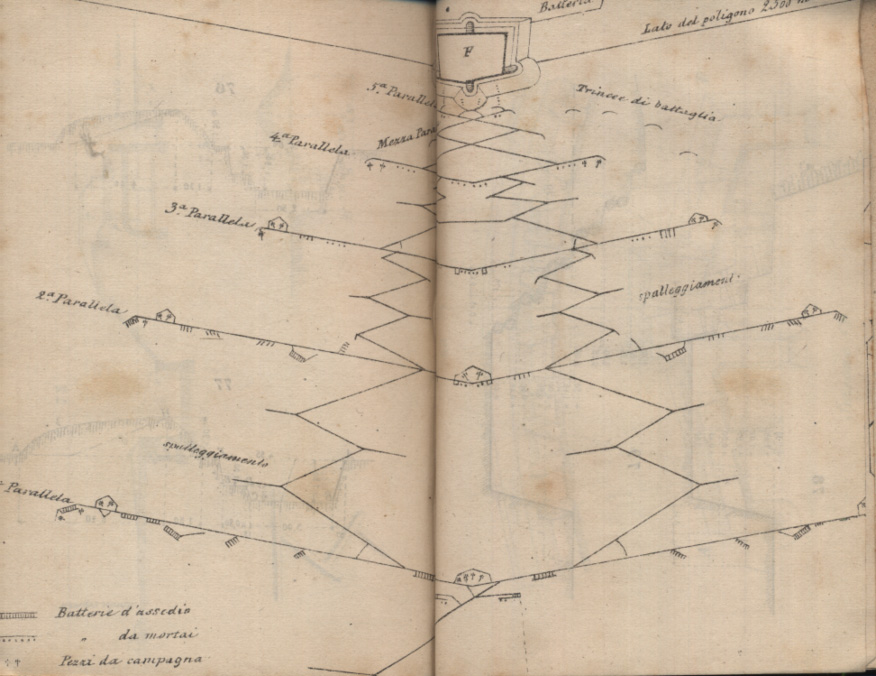 Batteria
Lato del poligono 2300 m
F
5.ª Parallela
Trincee di battaglia
4.ª Parallela
Mezza Para
3.ª Parallela
spalleggiament
2.ª Parallela
spalleggiamento
Parallela
Batterie d'assedio
" da mortai
Pezzi da campagna
76
77